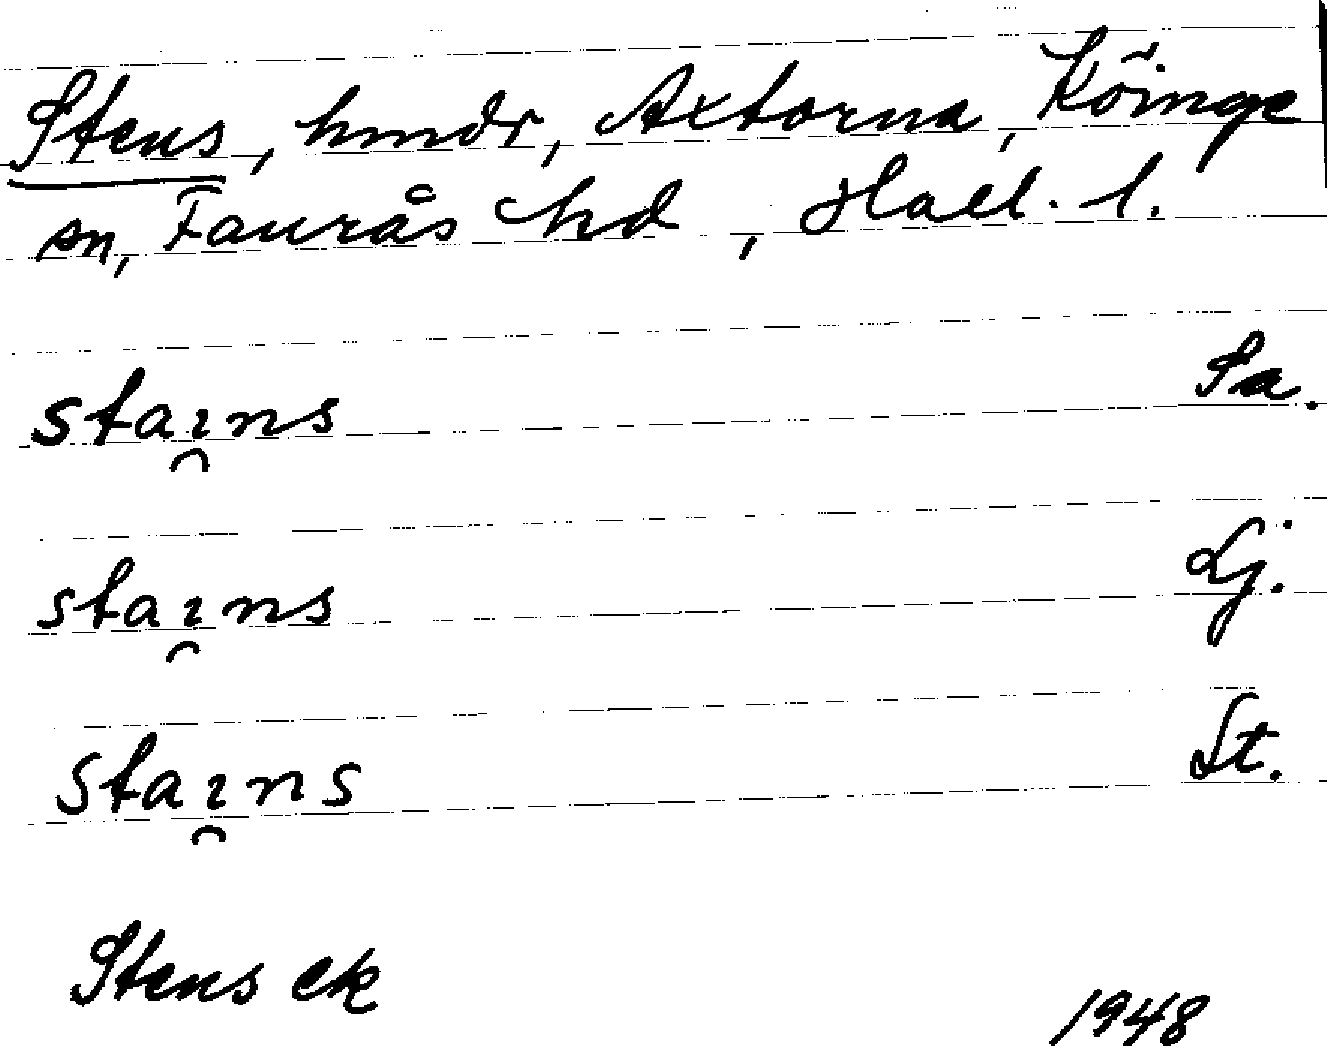 Stens, hmdr, Axtorna, Köinge
sn, Faurås hd, Hall. l.
staı̯ns Sa.
staı̯ns Lj.
staı̯ns St.
Stens ek
1948